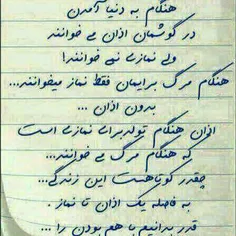 هنگام به دنیا آمدن
در گوشمان اذان می خوانند
ولی نمازی نمی خوانند!
هنگام مرگ برایمان فقط نماز میخوانند...
بدون اذان ...
اذان هنگام تولد برای نمازی است
که هنگام مرگ می خوانند...
چقدر کوتاهست این زندگی...
به فاصله یک اذان تا نماز .
قدر بدانیم با هم بودن را ...